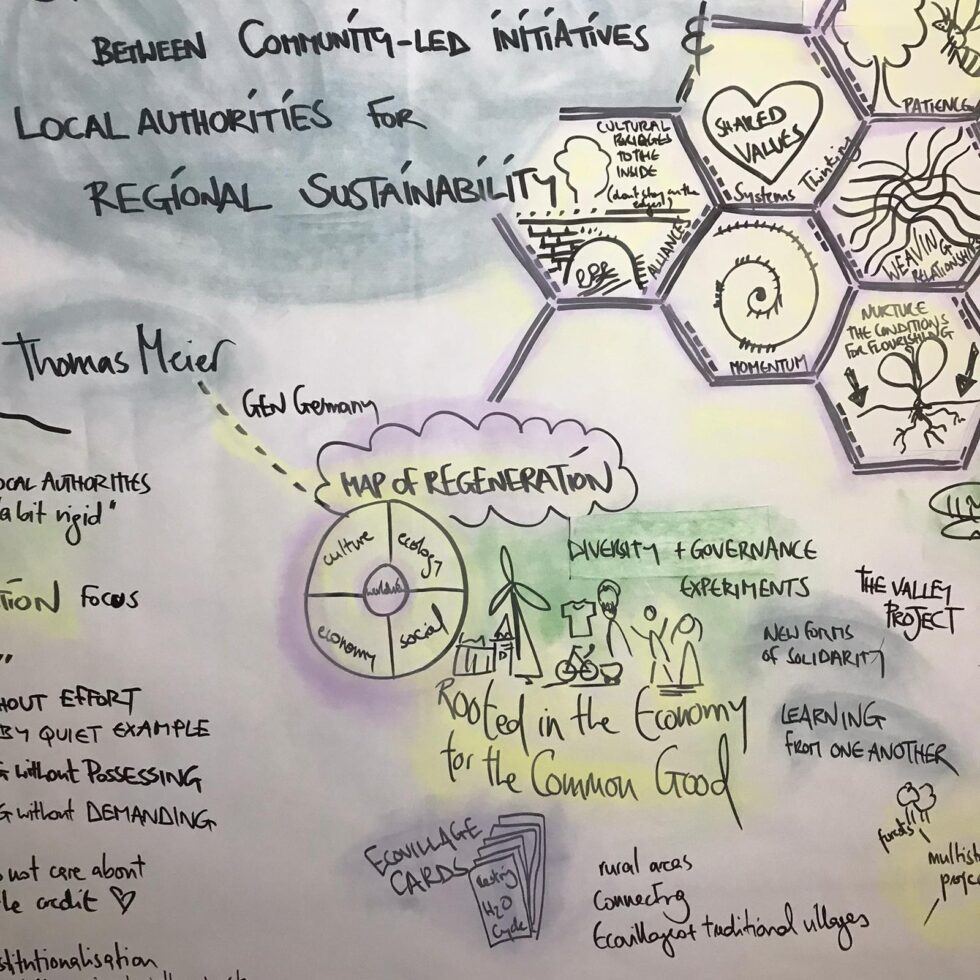 BETWEEN COMMUNITY-LED INITIATIVES &
LOCAL AUTHORITIES FOR
REGIONAL SUSTAINABILITY
CULTURAL
BRIDGES
TO THE
INSIDE
(don't stay on the
edges)
ALLIANCES
SHARED
VALUES
Systems Thinking
PATIENCE
WEAVING
RELATIONSHIPS
MOMENTUM
NURTURE
THE CONDITIONS
FOR FLOURISHING
Thomas Meier
GEN Germany
MAP OF REGENERATION
culture
ecology
economy
social
DIVERSITY + GOVERNANCE
EXPERIMENTS
THE VALLEY
PROJECT
NEW FORMS
OF SOLIDARITY
Rooted in the Economy
for the Common Good
LEARNING
FROM ONE ANOTHER
LOCAL AUTHORITIES
"a bit rigid"
TION FOCUS
HOUT EFFORT
BY QUIET EXAMPLE
G without POSSESSING
G without DEMANDING
not care about
credit
stitutionalisation
ECOVILLAGE
CARDS
H2O
Cycle
rural areas
Connecting
Ecovillages + traditional villages
forests
multist
proje